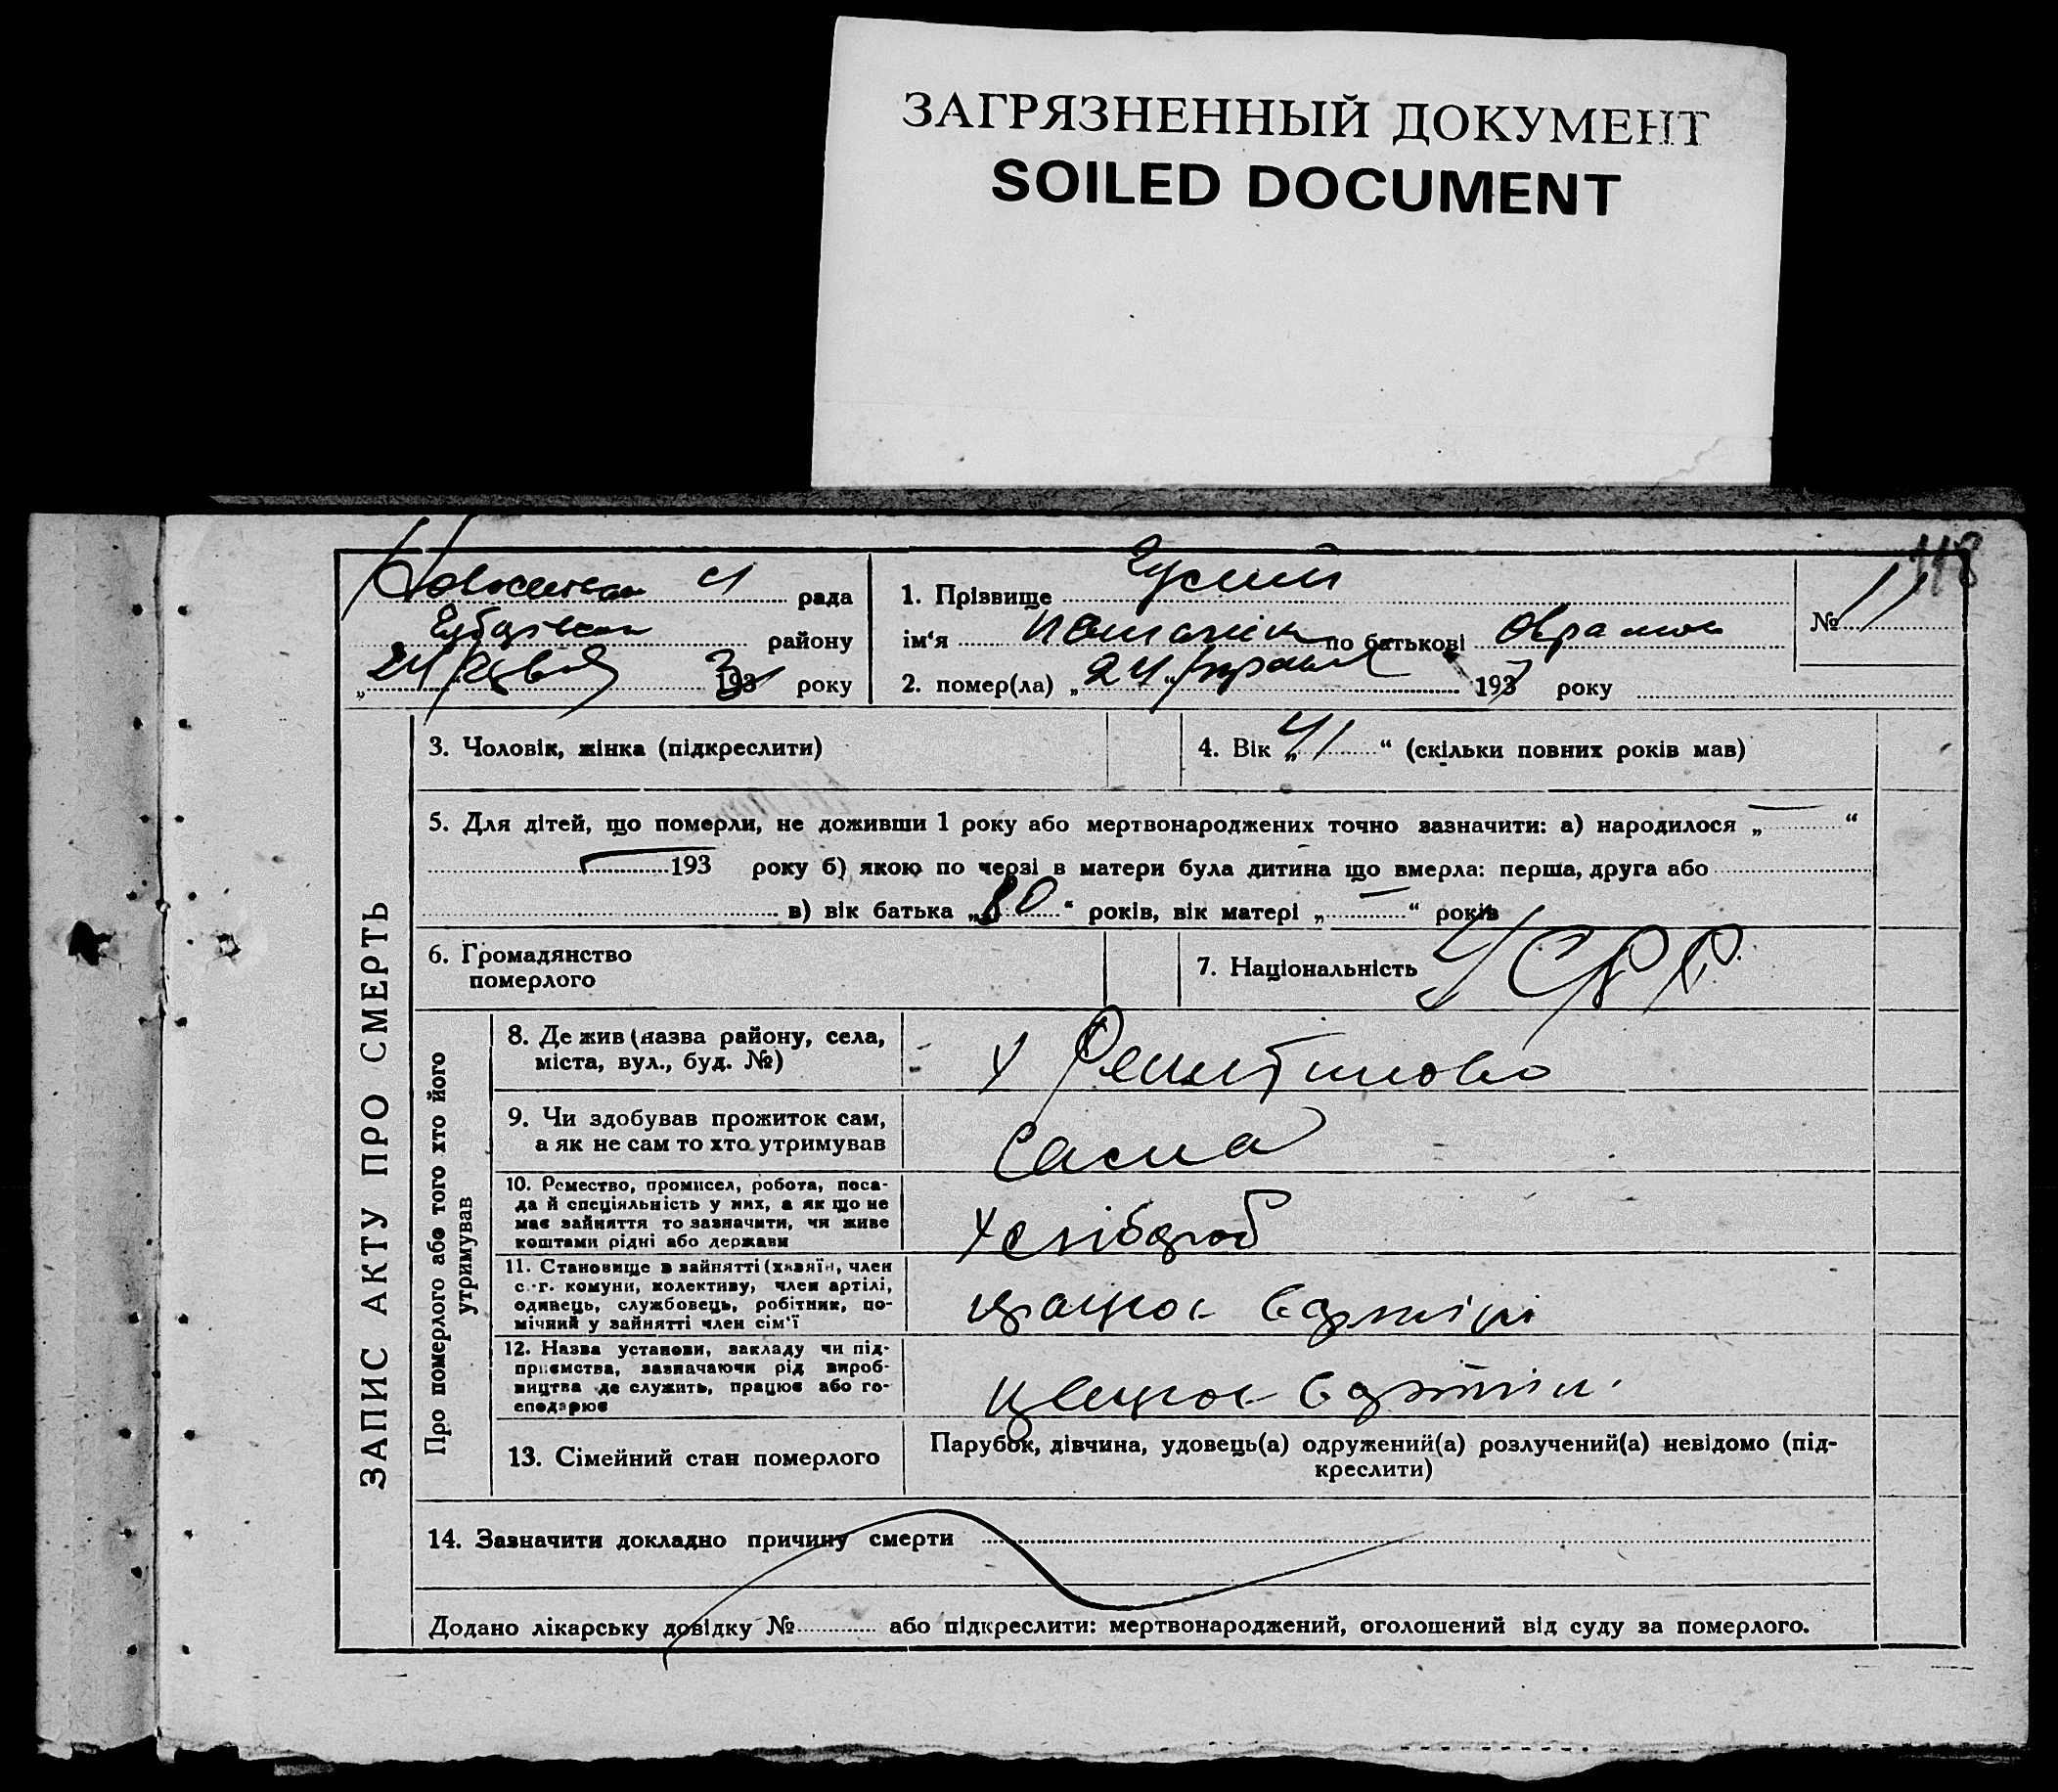 ЗАГРЯЗНЕННЫЙ ДОКУМЕНТ
SOILED DOCUMENT
118
рада
району
„24 193 року
1. Пріввище
ім‘я по батькові
2. помер(ла) „24“ 193 року
№ 11
ЗАПИС АКТУ ПРО СМЕРТЬ
3. Чоловік, жінка (підкреслити)
4. Вік „41“ (скільки повних років мав)
5. Для дітей, що померли, не доживши 1 року або мертвонароджених точно зазначити: а) народилося „—“
193 року б) якою по черзі в матери була дитина що вмерла: перша, друга або
в) вік батька „80“ років, вік матері „—“ років
6. Громадянство
померлого
7. Національність УСРР
Про померлого або того хто його
утримував
8. Де жив (назва району, села,
міста, вул., буд. №)
9. Чи здобував прожиток сам,
а як не сам то хто утримував
Сама
10. Ремество, промисел, робота, поса-
да й спеціяльність у них, а як що не
має зайняття то зазначити, чи живе
коштами рідні або держави
Хлібороб
11. Становище в зайнятті (хазяїн, член
с.-г. комуни, колективу, член артілі,
одинець, службовець, робітник, по-
мічний у зайнятті член сім‘ї
12. Назва установи, закладу чи під-
приємства, зазначаючи рід вироб-
ництва де служить, працює або го-
сподарює
13. Сімейний стан померлого
Парубок, дівчина, удовець(а) одружений(а) розлучений(а) невідомо (під-
креслити)
14. Зазначити докладно причину смерти
Додано лікарську довідку № або підкреслити: мертвонароджений, оголошений від суду за померлого.